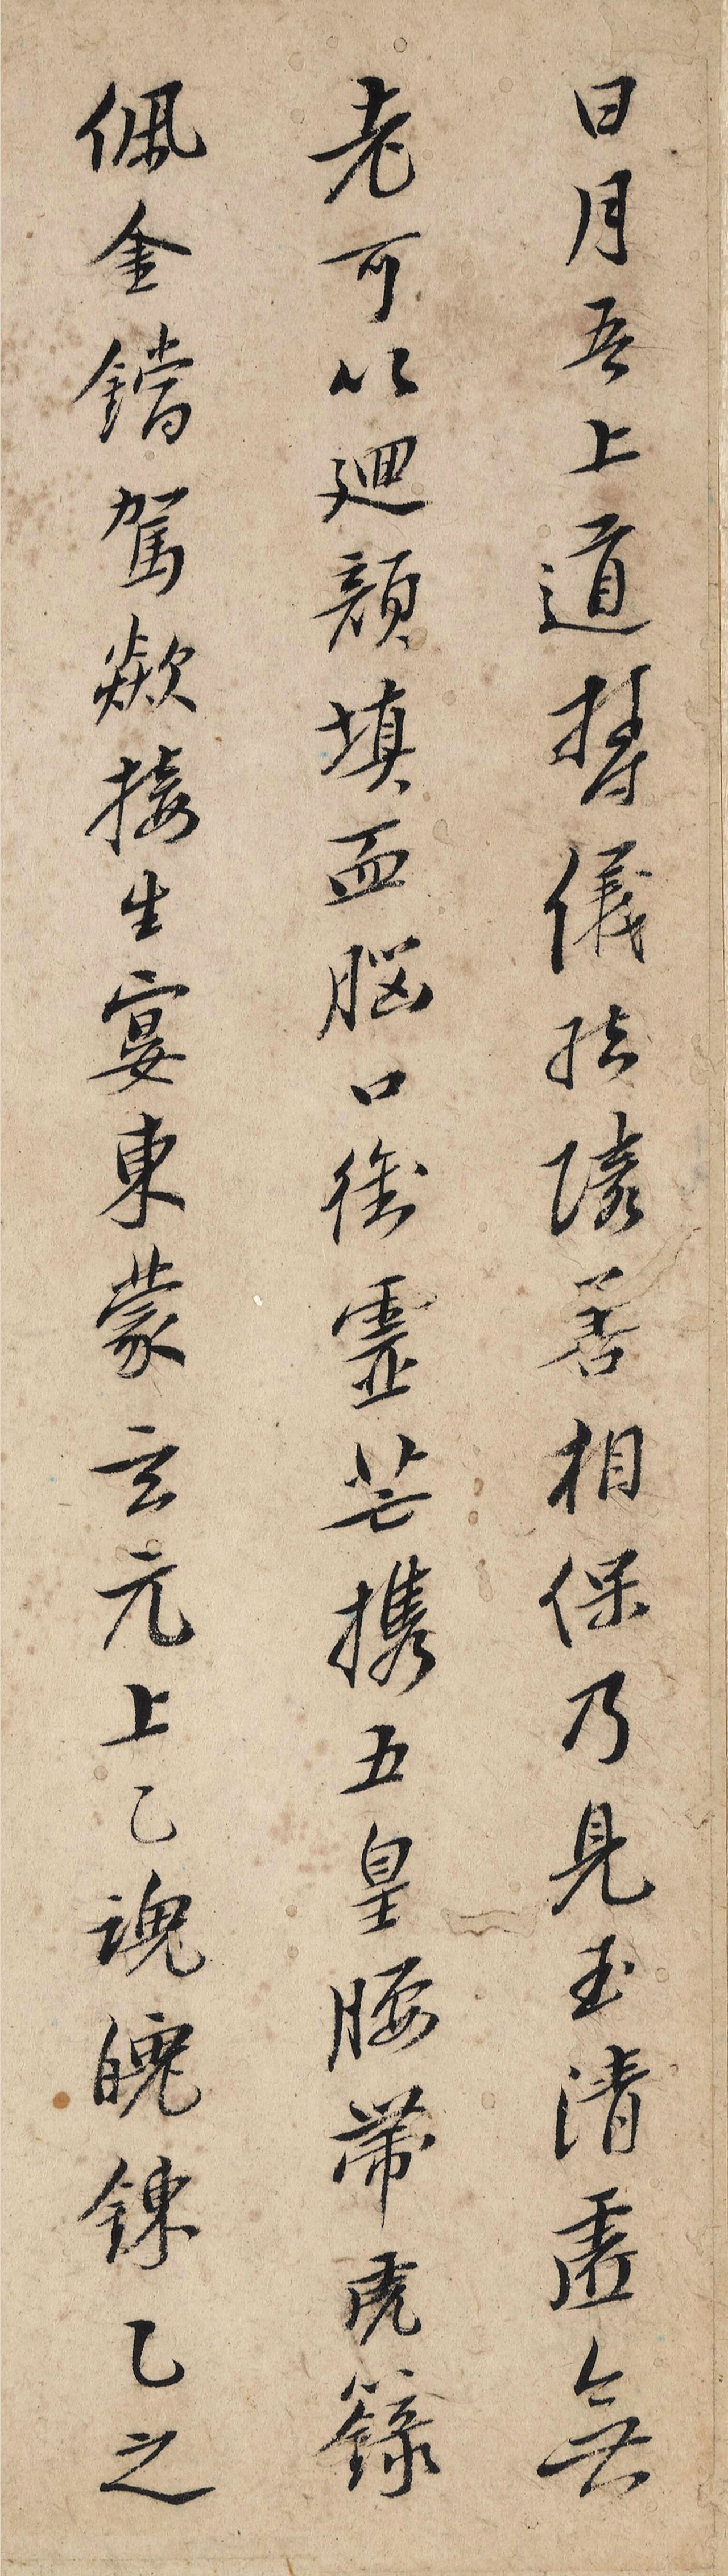 日月吾上道摶儀結隣善相保乃見玉清虛無
老可以迴顏填血腦口銜靈芒携五皇腰帶虎籙
佩金鐺駕歘接生宴東蒙玄元上乙魂魄鍊乙之